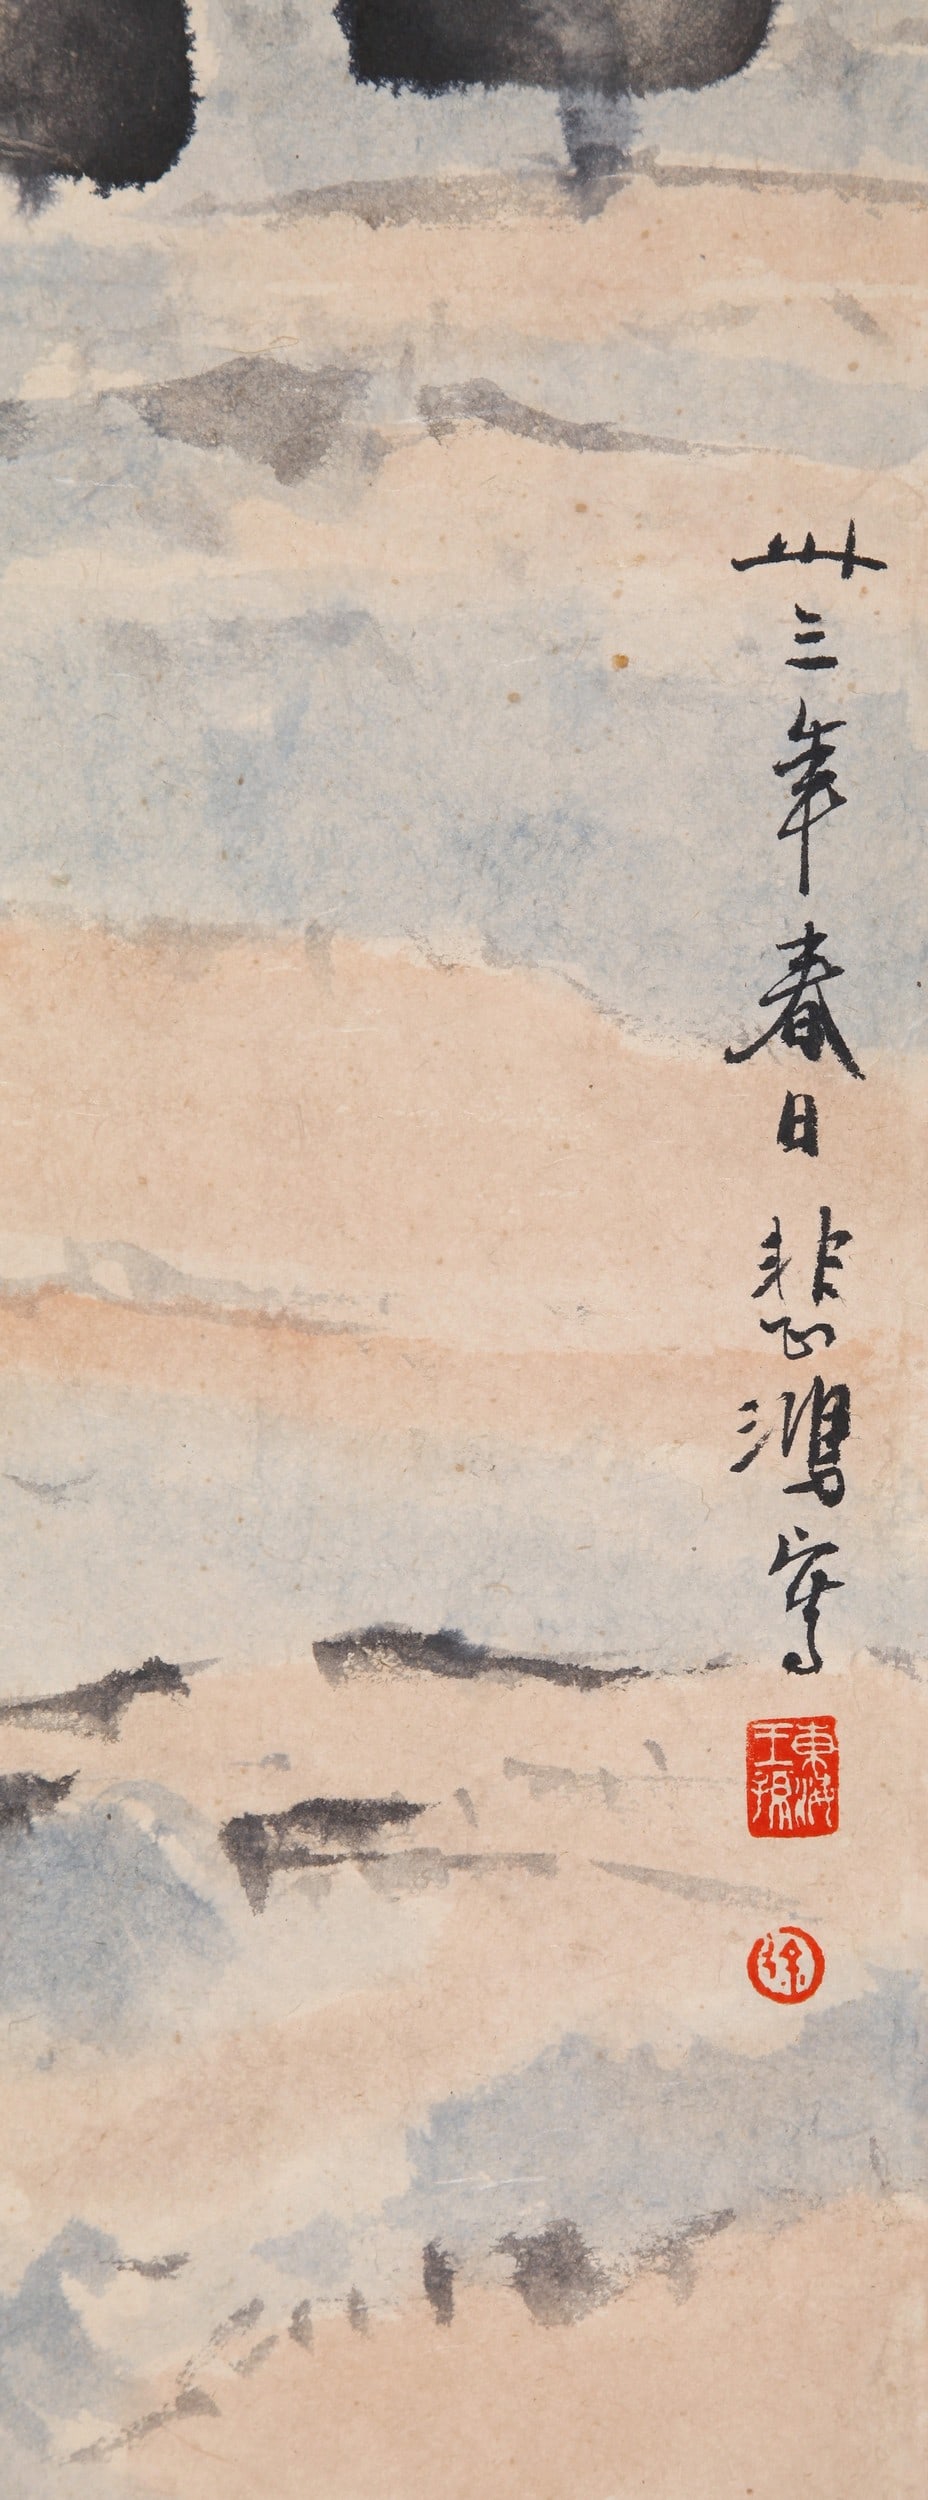 卅三年春日悲鴻寫
東海王孫
徐